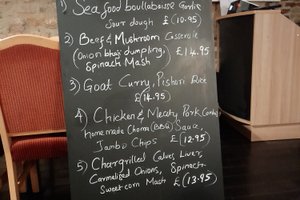 1) Seafood bouillabaisse Garlic
sour dough £(10.95)
2) Beef & Mushroom Casserole
(Onion bhaji dumpling)
Spinach Mash £14.95
3) Goat Curry, Pishori Rice
£(14.95)
4) Chicken & Meaty Pork
homemade Choma (BBQ) Sauce,
Jambo Chips £(12.95)
5) Chargrilled Calves Liver,
Carmelized Onions, Spinach
Sweetcorn Mash £(13.95)